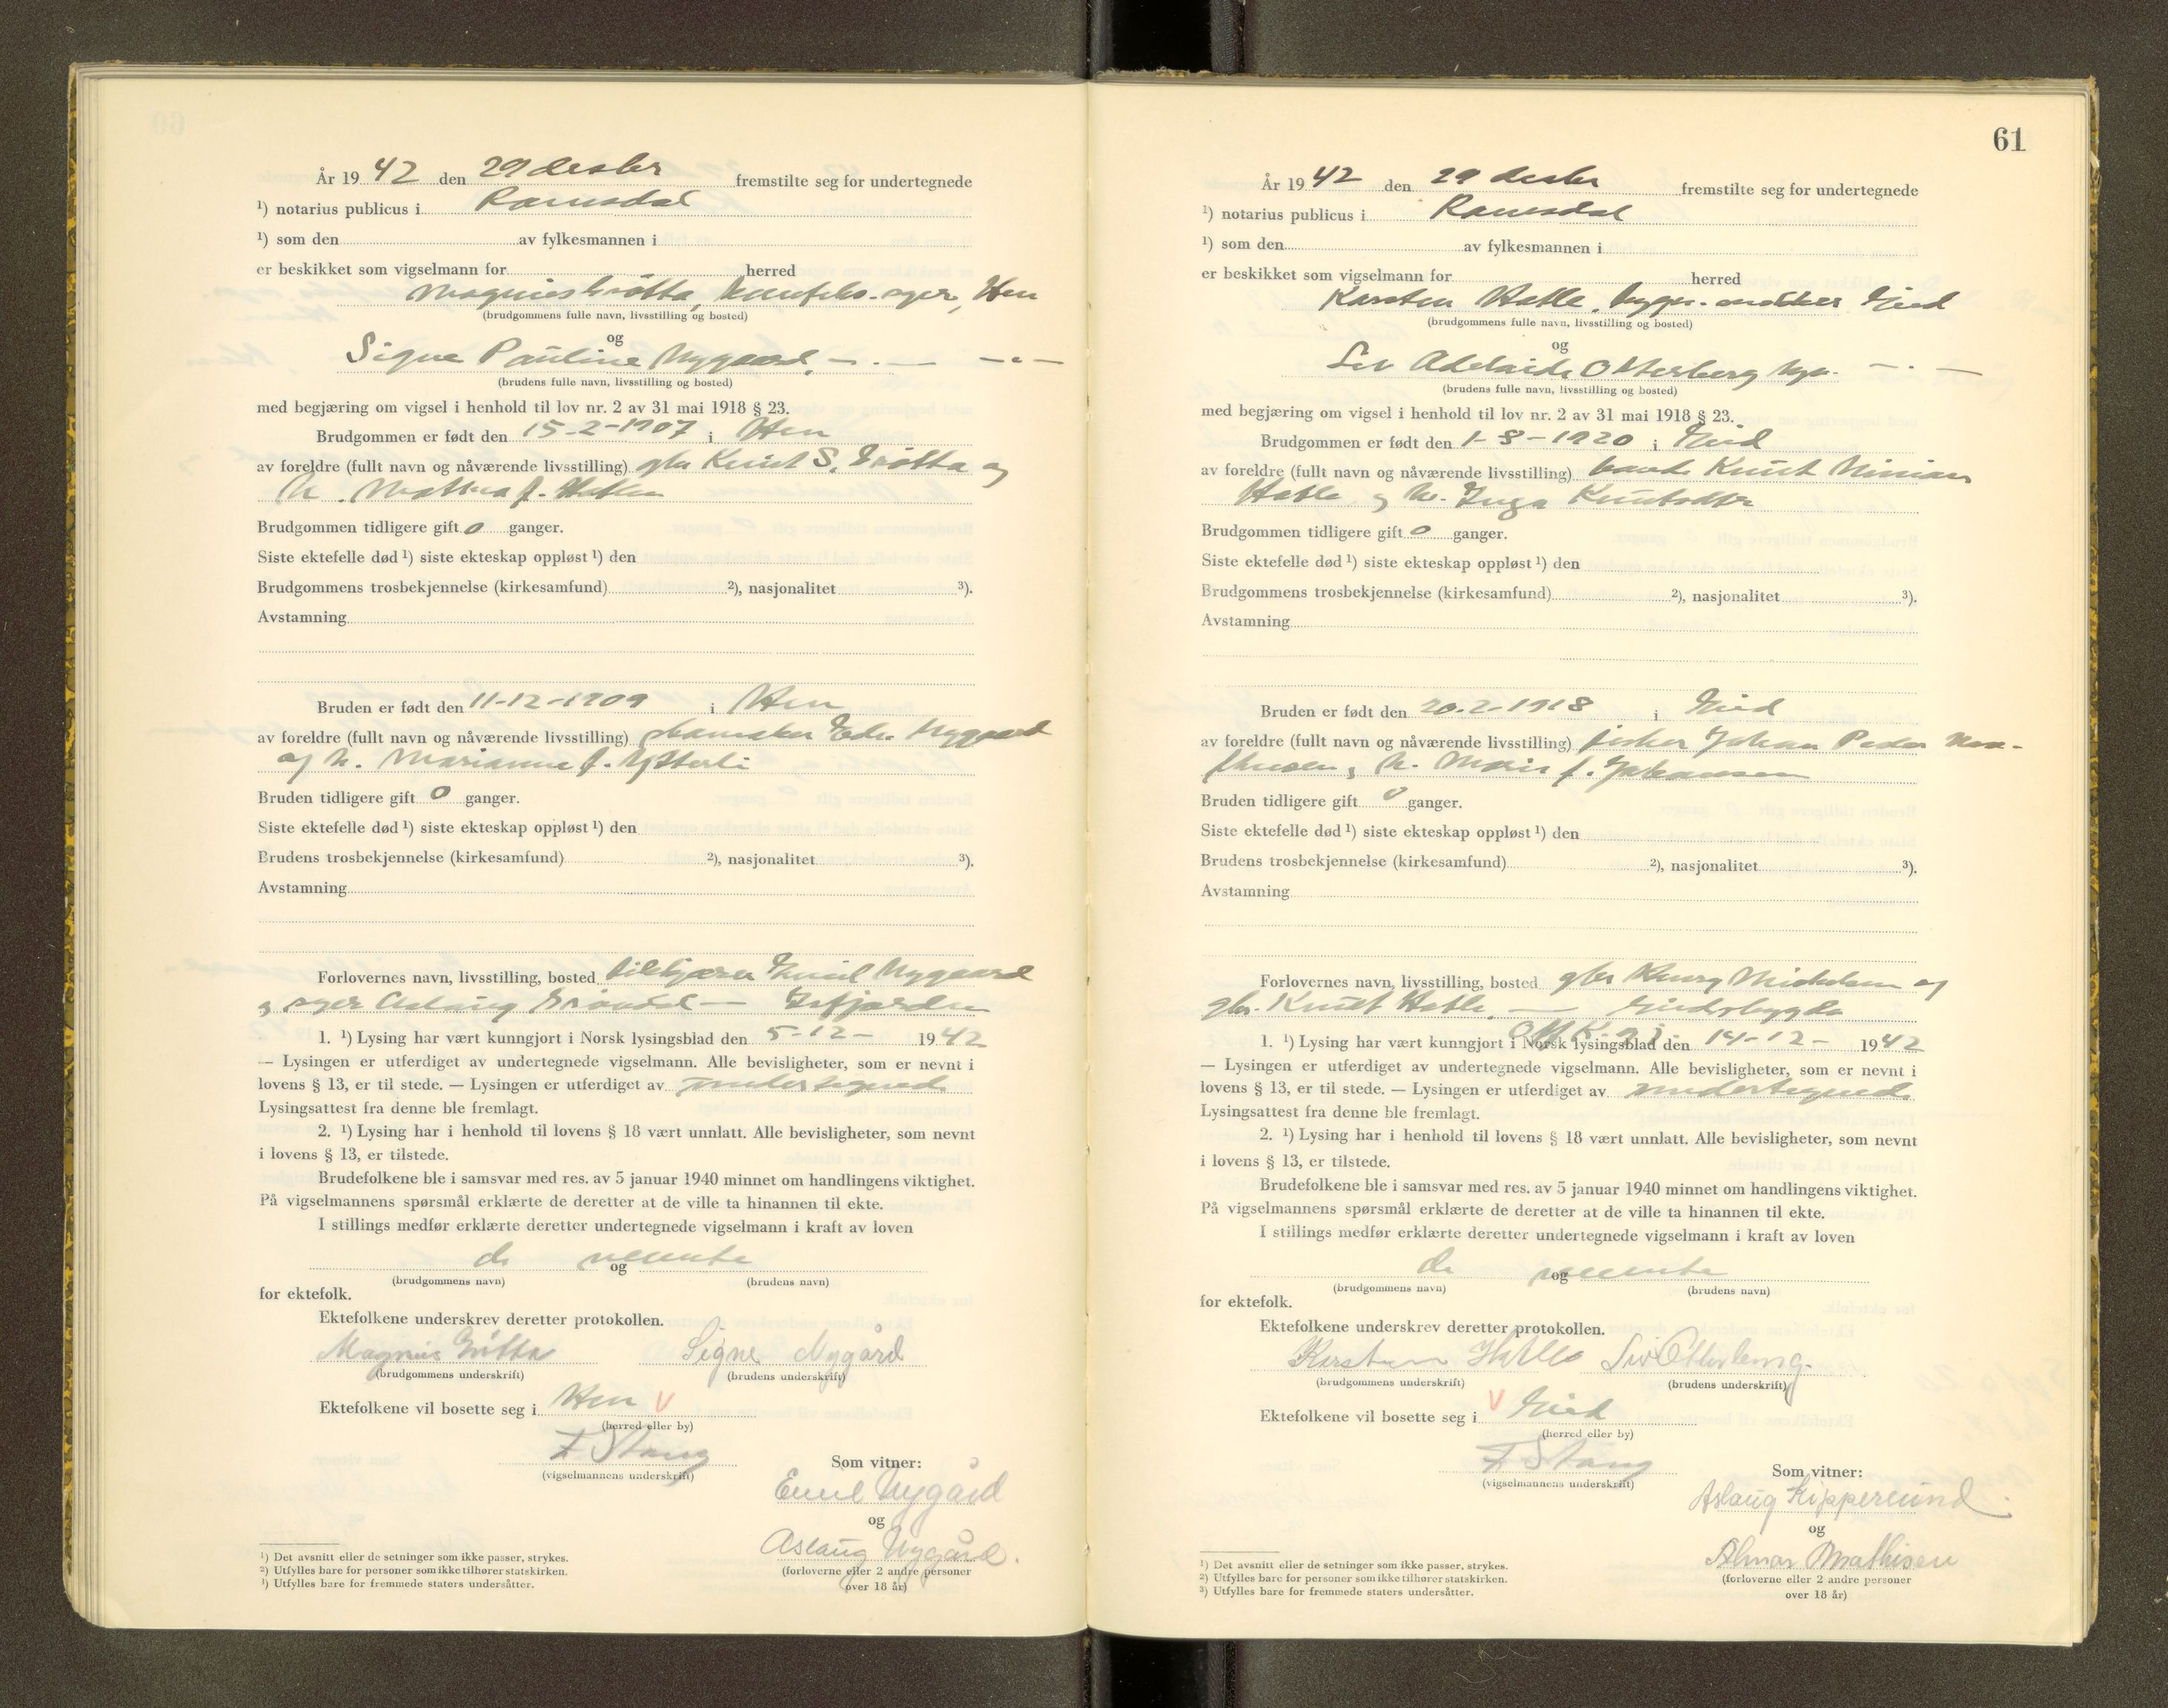 År 19 42 den 29 desbr fremstilte seg for undertegnede
¹) notarius publicus i Romsdal
¹) som den av fylkesmannen i
er beskikket som vigselmann for herred
Magnus Grøtta, Hen
(brudgommens fulle navn, livsstilling og bosted)
og
Signe Pauline Nygaard, — . — — . —
(brudens fulle navn, livsstilling og bosted)
med begjæring om vigsel i henhold til lov nr. 2 av 31 mai 1918 § 23.
Brudgommen er født den 15-2-1907 i Hen
av foreldre (fullt navn og nåværende livsstilling) gbr Knut S. Grøtta og
h. f. Hatlen
Brudgommen tidligere gift 0 ganger.
Siste ektefelle død ¹) siste ekteskap oppløst ¹) den
Brudgommens trosbekjennelse (kirkesamfund) ²), nasjonalitet ³).
Avstamning
Bruden er født den 11-12-1909 i Hen
av foreldre (fullt navn og nåværende livsstilling) Nygaard
og h. Marianne f. Ytterli
Bruden tidligere gift 0 ganger.
Siste ektefelle død ¹) siste ekteskap oppløst ¹) den
Brudens trosbekjennelse (kirkesamfund) ²), nasjonalitet ³).
Avstamning
Forlovernes navn, livsstilling, bosted Emil Nygaard
og Aslaug — Isfjorden
1. ¹) Lysing har vært kunngjort i Norsk lysingsblad den 5-12- 19 42
— Lysingen er utferdiget av undertegnede vigselmann. Alle bevisligheter, som er nevnt i
lovens § 13, er til stede. — Lysingen er utferdiget av undertegnede
Lysingsattest fra denne ble fremlagt.
2. ¹) Lysing har i henhold til lovens § 18 vært unnlatt. Alle bevisligheter, som nevnt
i lovens § 13, er tilstede.
Brudefolkene ble i samsvar med res. av 5 januar 1940 minnet om handlingens viktighet.
På vigselmannens spørsmål erklærte de deretter at de ville ta hinannen til ekte.
I stillings medfør erklærte deretter undertegnede vigselmann i kraft av loven
de nevnte
og
(brudgommens navn) (brudens navn)
for ektefolk.
Ektefolkene underskrev deretter protokollen.
Magnus Grøtta Signe Nygård
(brudgommens underskrift) (brudens underskrift)
Ektefolkene vil bosette seg i Hen V
(herred eller by)
F Stang
(vigselmannens underskrift)
Som vitner:
Emil Nygård
og
Aslaug Nygård.
(forloverne eller 2 andre personer
over 18 år)
¹) Det avsnitt eller de setninger som ikke passer, strykes.
²) Utfylles bare for personer som ikke tilhører statskirken.
³) Utfylles bare for fremmede staters undersåtter.
61
År 19 42 den 29 desbr fremstilte seg for undertegnede
¹) notarius publicus i Romsdal
¹) som den av fylkesmannen i
er beskikket som vigselmann for herred
Karsten Hatle, Eid
(brudgommens fulle navn, livsstilling og bosted)
og
Liv Adelaide Otterberg — . —
(brudens fulle navn, livsstilling og bosted)
med begjæring om vigsel i henhold til lov nr. 2 av 31 mai 1918 § 23.
Brudgommen er født den 1-8-1920 i Eid
av foreldre (fullt navn og nåværende livsstilling) Knut
Hatle og h. Inga Knutsdtr
Brudgommen tidligere gift 0 ganger.
Siste ektefelle død ¹) siste ekteskap oppløst ¹) den
Brudgommens trosbekjennelse (kirkesamfund) ²), nasjonalitet ³).
Avstamning
Bruden er født den 20.2-1918 i Eid
av foreldre (fullt navn og nåværende livsstilling) fisker Johan Peder
og h. f. Johansen
Bruden tidligere gift 0 ganger.
Siste ektefelle død ¹) siste ekteskap oppløst ¹) den
Brudens trosbekjennelse (kirkesamfund) ²), nasjonalitet ³).
Avstamning
Forlovernes navn, livsstilling, bosted gbr og
gbr. Knut Hatle, — Eidsbygda
1. ¹) Lysing har vært kunngjort i Norsk lysingsblad den 14-12- 19 42
— Lysingen er utferdiget av undertegnede vigselmann. Alle bevisligheter, som er nevnt i
lovens § 13, er til stede. — Lysingen er utferdiget av undertegnede
Lysingsattest fra denne ble fremlagt.
2. ¹) Lysing har i henhold til lovens § 18 vært unnlatt. Alle bevisligheter, som nevnt
i lovens § 13, er tilstede.
Brudefolkene ble i samsvar med res. av 5 januar 1940 minnet om handlingens viktighet.
På vigselmannens spørsmål erklærte de deretter at de ville ta hinannen til ekte.
I stillings medfør erklærte deretter undertegnede vigselmann i kraft av loven
de nevnte
og
(brudgommens navn) (brudens navn)
for ektefolk.
Ektefolkene underskrev deretter protokollen.
Karsten Hatle Liv Otterberg.
(brudgommens underskrift) (brudens underskrift)
Ektefolkene vil bosette seg i V Eid
(herred eller by)
F Stang
(vigselmannens underskrift)
Som vitner:
Aslaug Kippersund.
og
Almar Mathisen
(forloverne eller 2 andre personer
over 18 år)
¹) Det avsnitt eller de setninger som ikke passer, strykes.
²) Utfylles bare for personer som ikke tilhører statskirken.
³) Utfylles bare for fremmede staters undersåtter.